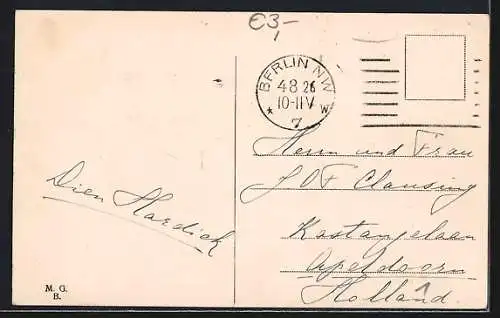 €3,-
BERLIN NW
4 8 26
10-11 V
* 7 w
Herrn und Frau
J O F Clausing
Kastanjelaan
Apeldoorn
Holland.
Dien Hardick
M. G.
B.